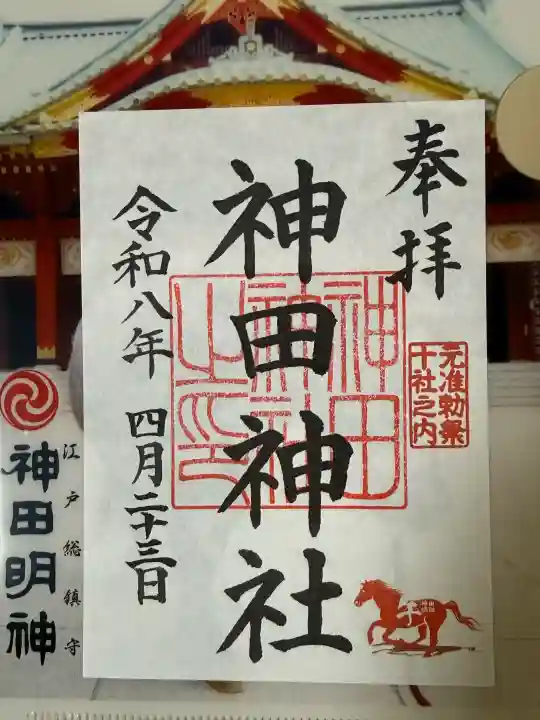 奉拝
元准勅祭
十社之内
神田神社
神田
神社
之印
令和八年 四月二十三日
江戸総鎮守
神田明神